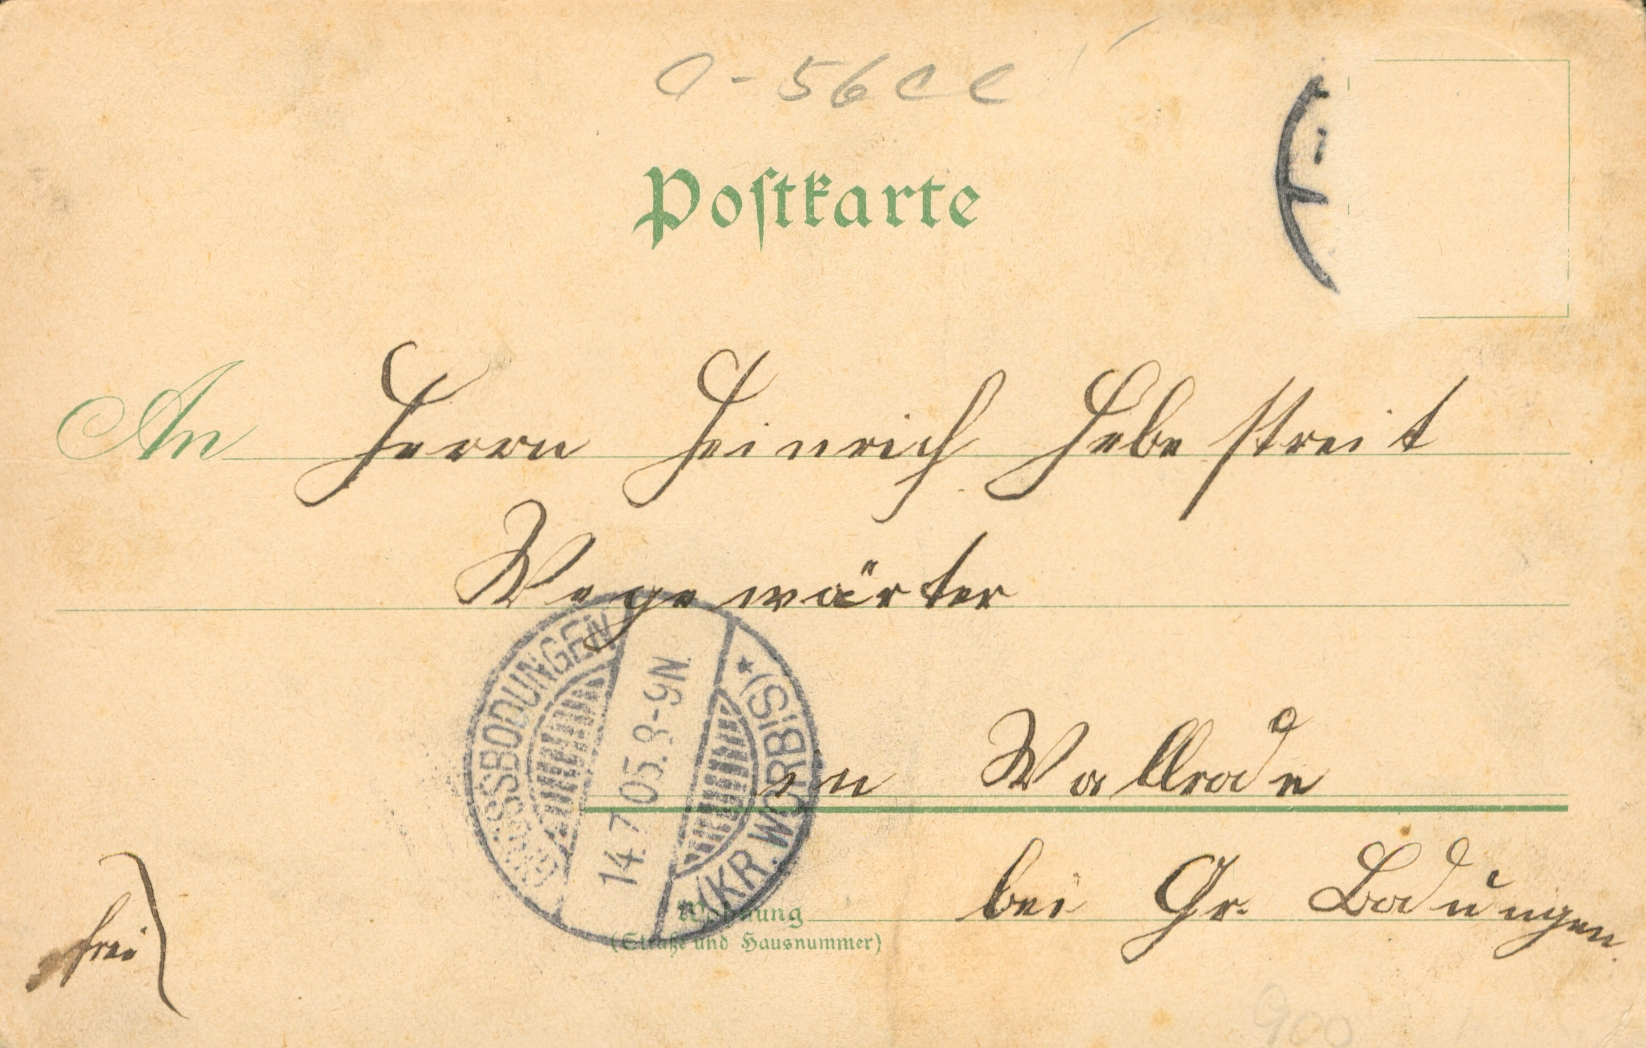 0-56cc
Postkarte
An Herrn Heinrich Hebestreit
Wegewärter
in Wallrode
bei Gr. Bodungen.
GROSSBODUNGEN
14.7.05.8-9N.
* (KR. WORBIS) *
Wohnung
(Straße und Hausnummer)
frei
900